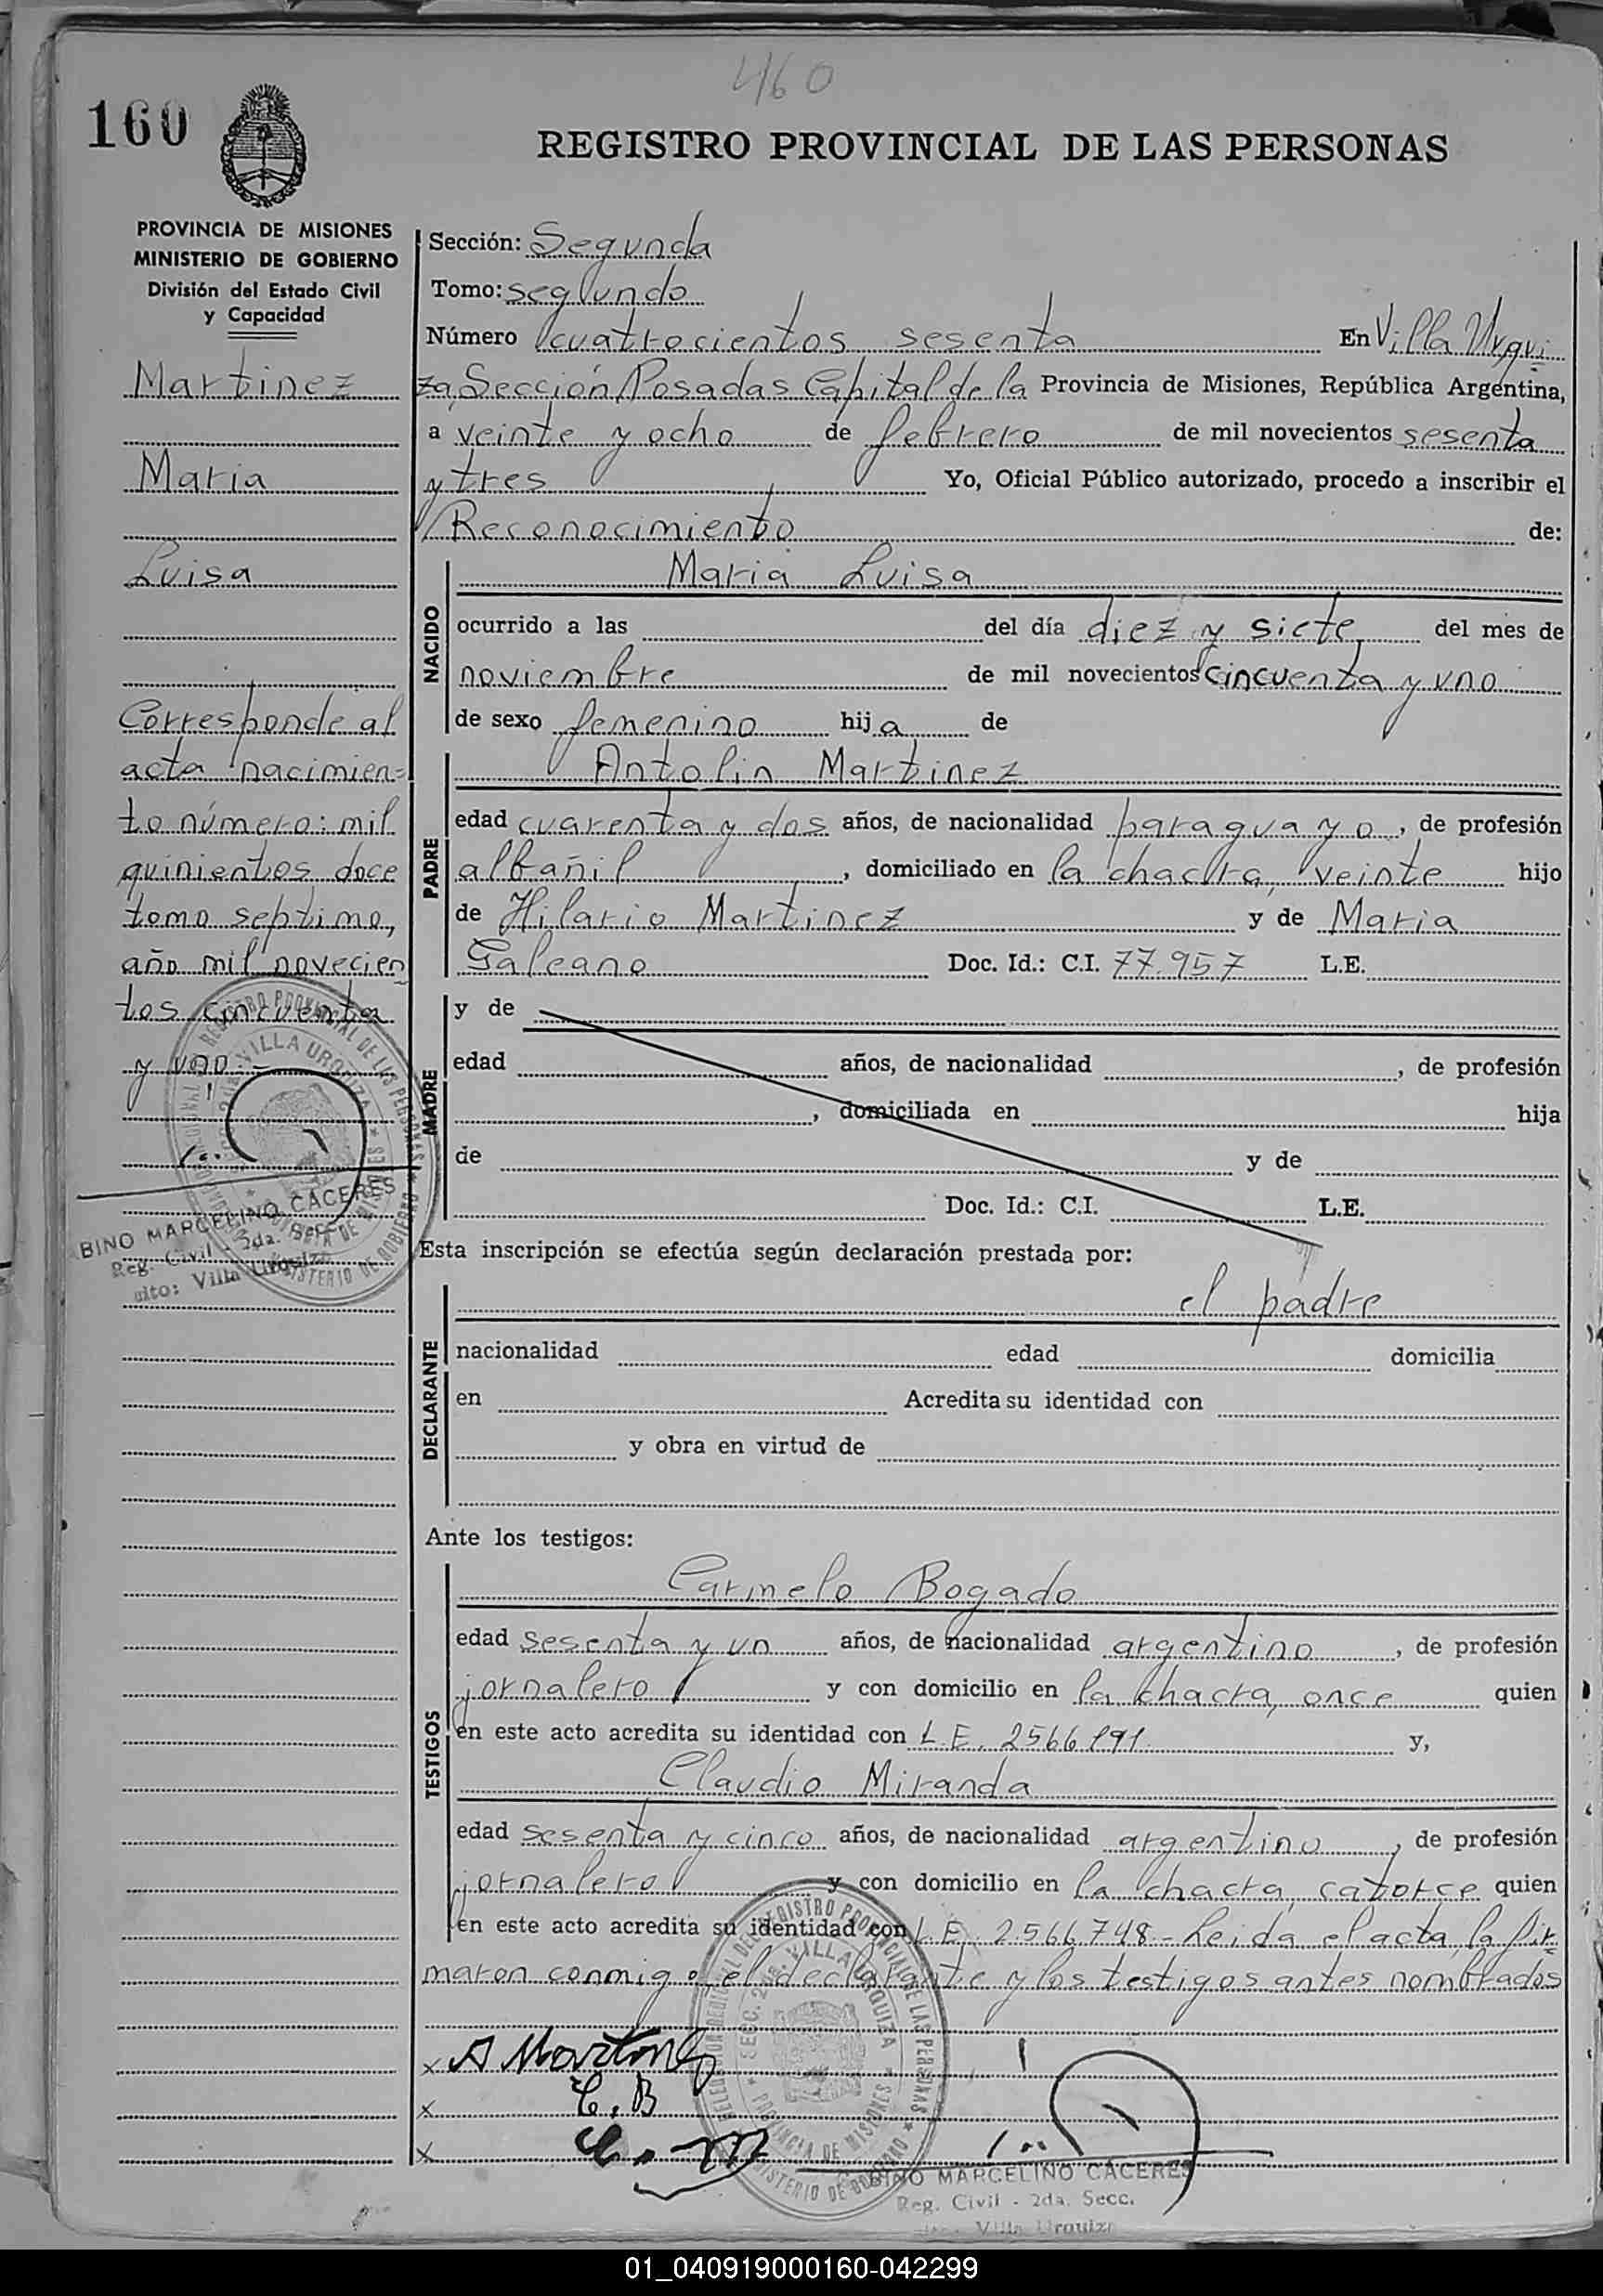 460
160
REGISTRO PROVINCIAL DE LAS PERSONAS
PROVINCIA DE MISIONES
MINISTERIO DE GOBIERNO
División del Estado Civil
y Capacidad
Martinez
Maria
Luisa
Corresponde al
acta nacimien=
to número: mil
quinientos doce
tomo septimo,
año mil novecien
tos cincuenta
y uno.-
BINO MARCELINO CACERES
Reg. Civil - 2da. Secc.
Villa Urquiza
Sección: Segunda
Tomo: segundo
Número cuatrocientos sesenta En Villa Urqui
za, Sección Posadas Capital de la Provincia de Misiones, República Argentina,
a veinte y ocho de febrero de mil novecientos sesenta
y tres Yo, Oficial Público autorizado, procedo a inscribir el
Reconocimiento de:
NACIDO
Maria Luisa
ocurrido a las del día diez y siete, del mes de
noviembre de mil novecientos cincuenta y uno
de sexo femenino hija de
PADRE
Antolin Martinez
edad cuarenta y dos años, de nacionalidad paraguayo, de profesión
albañil, domiciliado en la chacra, veinte hijo
de Hilario Martinez y de Maria
Galeano Doc. Id.: C.I. 77.957 L.E.
MADRE
y de
edad años, de nacionalidad , de profesión
, domiciliada en hija
de y de
Doc. Id.: C.I. L.E.
Esta inscripción se efectúa según declaración prestada por:
DECLARANTE
el padre
nacionalidad edad domicilia
en Acredita su identidad con
y obra en virtud de
Ante los testigos:
TESTIGOS
Carmelo Bogado
edad sesenta y un años, de nacionalidad argentino, de profesión
jornalero y con domicilio en la chacra, once quien
en este acto acredita su identidad con L.E. y,
Claudio Miranda
edad sesenta y cinco años, de nacionalidad argentino, de profesión
jornalero y con domicilio en la chacra, catorce quien
en este acto acredita su identidad con L.E. 2.566.748.- Leida el acta, la fir
maron conmigo, el declarante y los testigos antes nombrados
x A Martinez
x C. B
x C. M
BINO MARCELINO CACERES
Reg. Civil - 2da. Secc.
Villa Urquiza
01_040919000160-042299